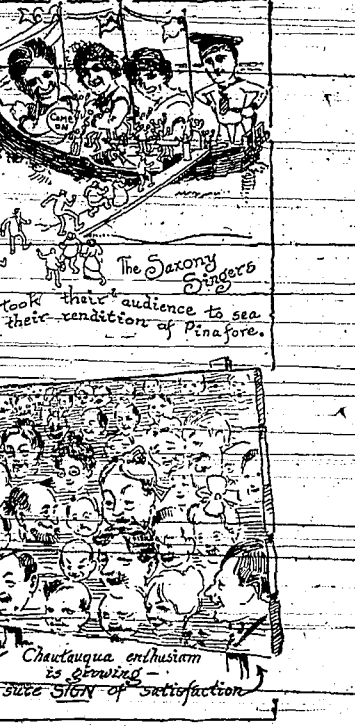 COME
ON
The Saxony
Singers
took their audience to sea
their rendition of Pinafore.
Chautauqua enthusiasm
is growing —
sure SIGN of satisfaction